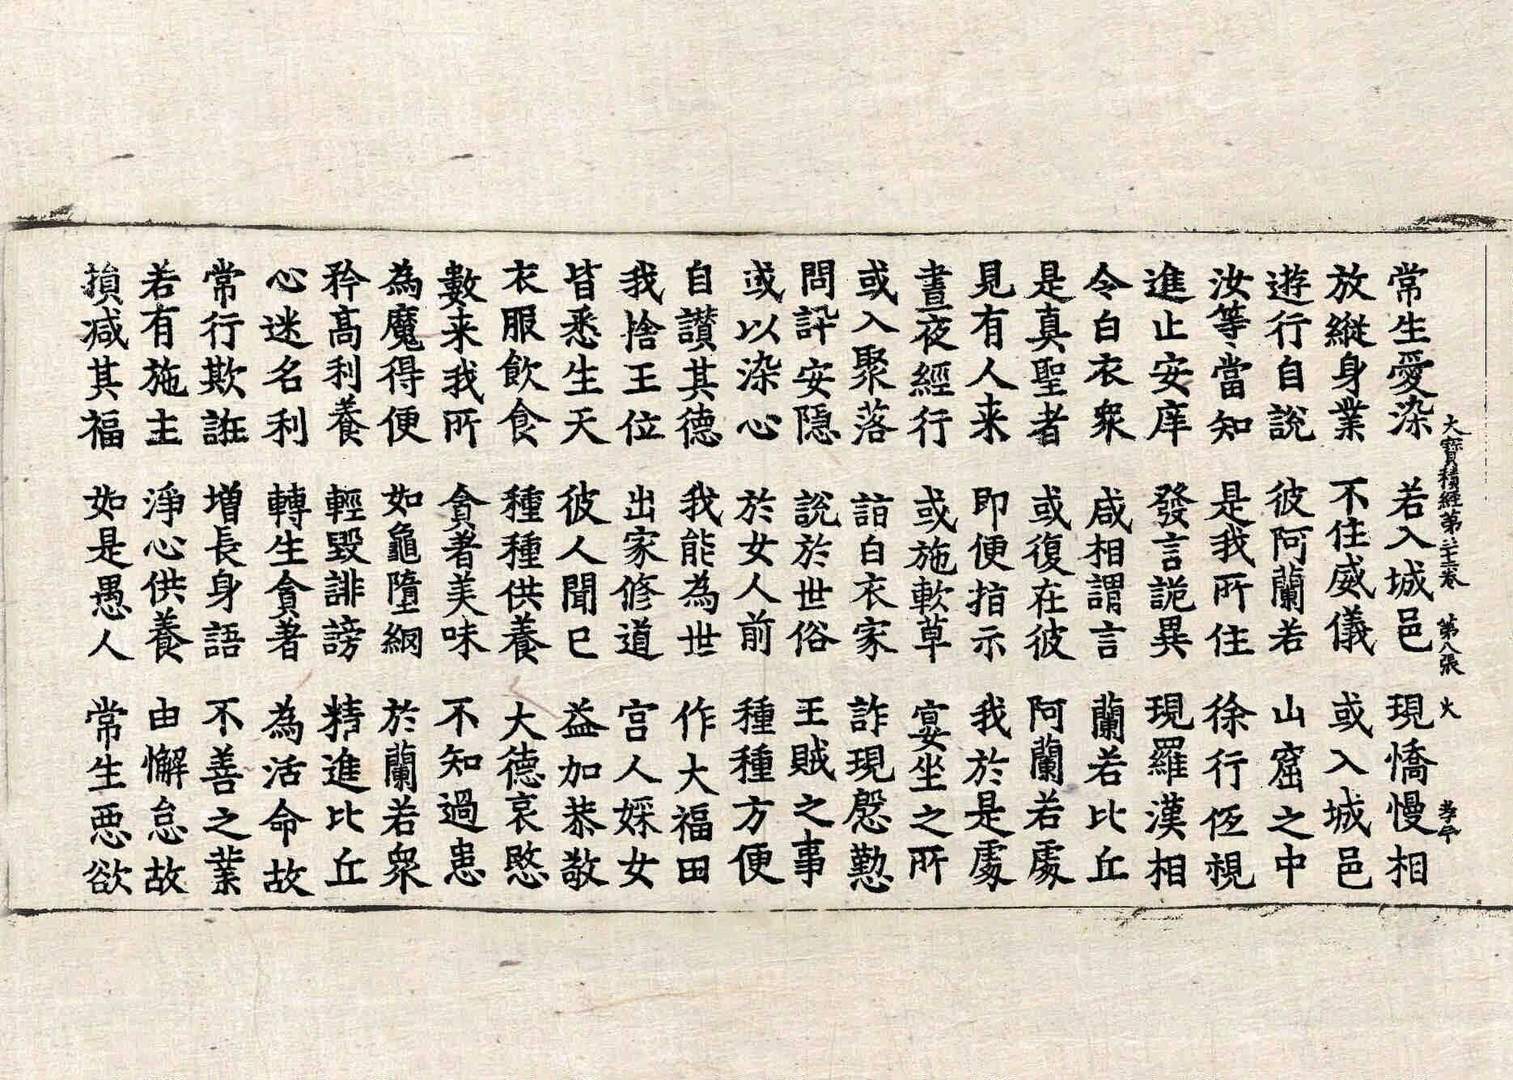 大寶積經第二十三卷 第八張 火
常生愛染 若入城邑 現憍慢相
放縱身業 不住威儀 或入城邑
遊行自說 彼阿蘭若 山窟之中
汝等當知 是我所住 徐行低視
進止安庠 發言詭異 現羅漢相
令白衣衆 咸相謂言 蘭若比丘
是真聖者 或復在彼 阿蘭若處
見有人来 即便指示 我於是處
晝夜經行 或施軟草 宴坐之所
或入聚落 詣白衣家 詐現慇懃
問訊安隱 說於世俗 王賊之事
或以染心 於女人前 種種方便
自讃其德 我能為世 作大福田
我捨王位 出家修道 宮人婇女
皆悉生天 彼人聞已 益加恭敬
衣服飲食 種種供養 大德哀愍
數来我所 貪著美味 不知過患
為魔得便 如龜墮網 於蘭若衆
矜高利養 輕毀誹謗 精進比丘
心迷名利 轉生貪著 為活命故
常行欺誑 增長身語 不善之業
若有施主 淨心供養 由懈怠故
損减其福 如是愚人 常生惡欲